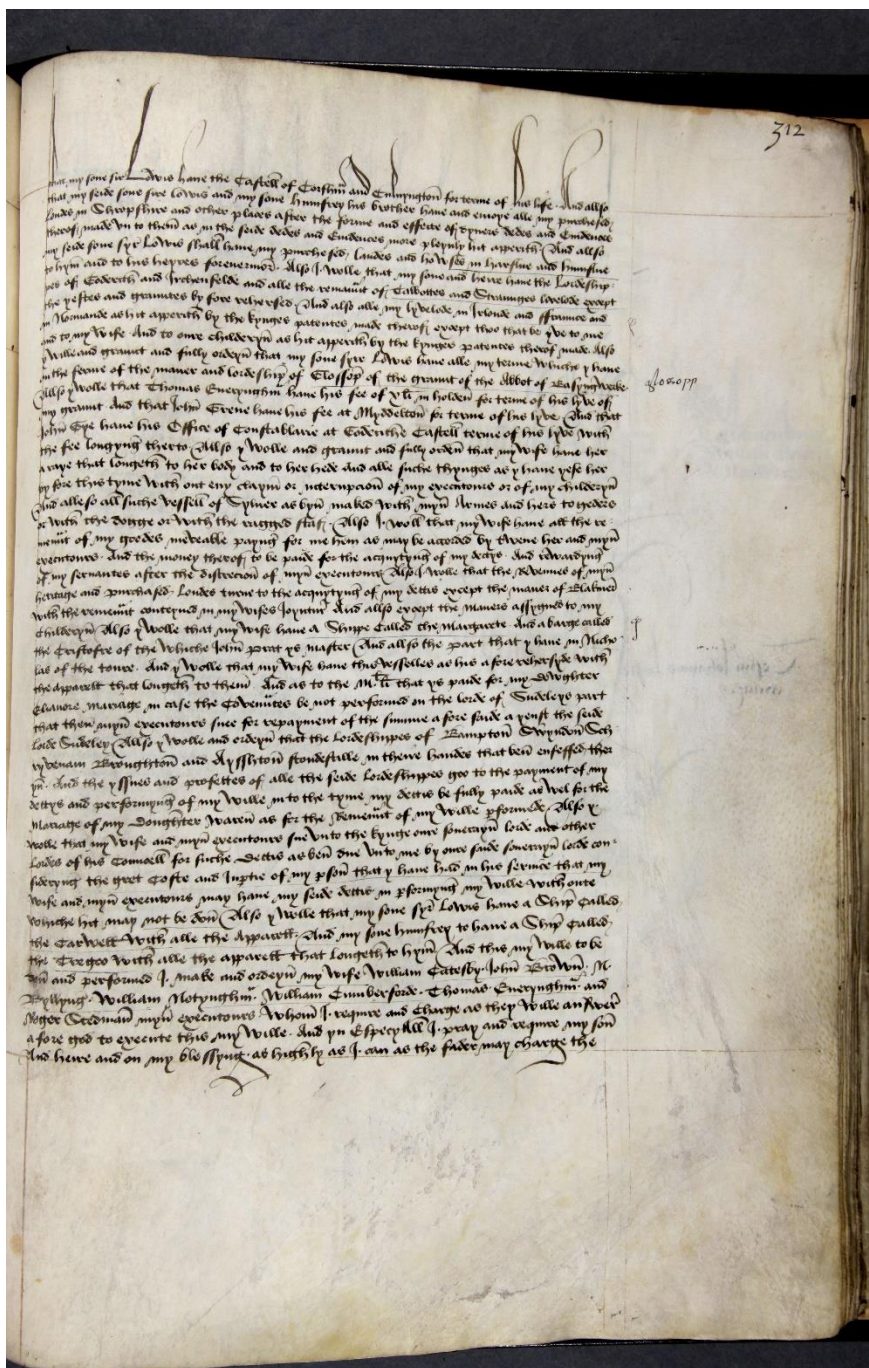 312
that my sone sir Lowis have the Castell of Corfhm and Cunyngton for terme of his life And allso
that my seide sone sire Lowis and my sone humfrey his brother have and enioye alle my purchesed
londes in Shropshire and other places after the forme and effecte of dyuers dedes and Euidences
therof made vn to them as in the seide dedes and Euidences more pleynly hit apperith And allso
my seide sone syr Lowis shall have my purchesed landes and howses in harflue and humflue
to hym and to his heyres forevermor Also J wolle that my sone and heire have the Lordeship
pes of Goderith and Irchenfelde and alle the remañt of Talbottes and Straunges livelode except
the yeftes and grauntes by fore rehersed And also alle my lyvelode in Irlonde and ffraunce and
in Normandie as hit apperith by the kynges patentes made therof except thoo that be yve to me
and to my wife And to oure childeryn as hit apperith by the kynges patentes therof made Also
y wille and graunt and fully ordeyn that my sone syr Lowis have alle my terme whiche y have
in the ferme of the maner and lordeship of Glossop of the graunt of the Abbot of Basyngwerke
Glossopp
Allso y wolle that Thomas Eueryngham have his fee of xli in holden for terme of his lyve of
my graunt And that John Grene have his fee at Myddelton for terme of his lyve And that
John Gye have his Office of Constablarie at Goderithe Castell terme of his lyve with
the fee longyng therto Allso y wolle and graunt and fully orden that my wife have her
araye that longeth to her body and to her hede And alle suche thynges as y have yefe her
by fore this tyme with out eny claym or interupcion of my executours or of my childeryn
And alleso all suche vessell of Syluer as byn maked with myn Armes and hers to geders
or with the dogge or with the ragged staf Also J woll that my wife have all the re
menãt of my goodes meveable payng for me hem as may be acorded by twene her and myn
executours And the money therof to be paide for the acquytyng of my dettys And rewardyng
of my servantes after the discrecion of myn executours Also J wolle that the Revenues of myn
heritage and purchased londes turne to the acquytyng of my dettis except the maner of Blakmer
with the remenãt conteyned in my wifes Joyntur And allso except the maners assygned to my
Childeryn Also y wolle that my wife have a Shippe Called the Margarete And a barge called
the Cristofre of the whiche John prat ys master And allso the part that y have in Nicho
las of the toure And y wolle that my wife have this vesselles as his a fore rehersyde with
the apparell that longeth to them And as to the Mli that ys paide for my Dowghter
Elianore Mariage in case the Covenãtes be not performed on the lorde of Sudeleys part
that then myn executours suee for repayment of the summe a fore saide a yenst the seide
Lorde Sudeley Allso y wolle and ordeyn that the Lordeshippes of Bampton Swyndon Sch
ryvenam Broughton and Aysshton stondestille in theire handes that ben enfeffed ther
yn And the yssues and profettes of alle the seide Lordeshippes goo to the payment of my
dettys and performyng of my wille in to the tyme my dettis be fully paide as wel for the
Mariage of my Doughter Waren as for the Remenãt of my wille pformede Also y
wolle that my wife and myn executours sue vn to the kynge oure souerayn lorde and other
Lordes of his Councell for suche Dettis as ben due vnto me by oure saide souerayn lorde con
sideryng the gret Coste and Jnprie of my pson that y have had in his seruice that my
wife and myn executours may have my seide dettis in pformyng my wille with oute
whiche hit may not be don Also y wolle that my sone Syr Lowis have a Ship Called
the Carwell with alle the Apparell And my sone humfrey to have a Ship Called
the Trego with alle the apparell that longeth to hym And this my wille to be
don and performed J make and ordeyn my wife William Catesby John Brown N
Byllyng William Notyngham William Cumberforde Thomas Eueryngham and
Roger Stedman myn executours whom J require and Charge as they wille answer
a fore god to execute this my wille And yn EspecyAll J pray and require my son
And heire and on my blessyng as highly as J can as the fader may charge the